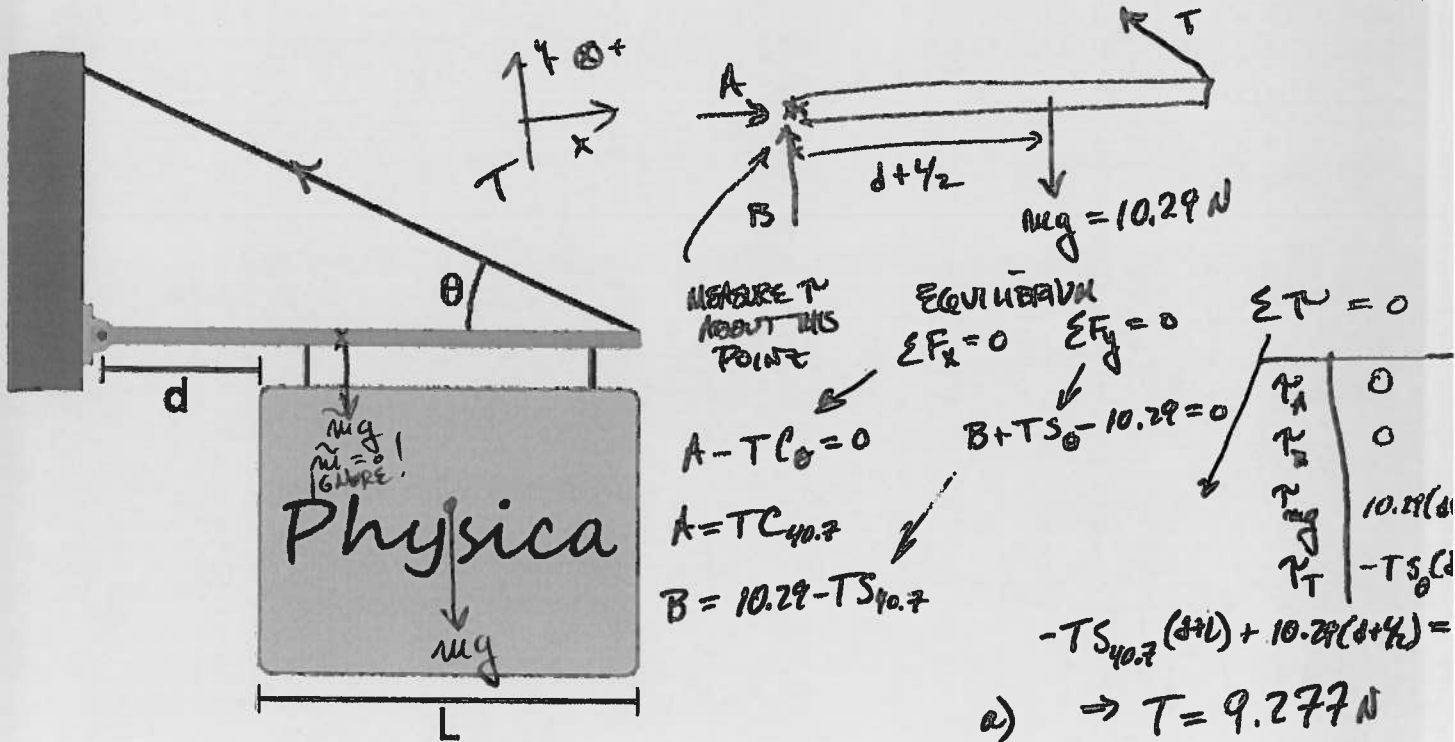 y ⊗+
x
T
θ
d
m̃g
m̃ = 0
IGNORE!
Physica
mg
L
A
B
T
d+L/2
mg = 10.29 N
MEASURE τ
ABOUT THIS
POINT
EQUILIBRIUM
ΣF_x = 0 ΣF_y = 0
A - TC_θ = 0
B + TS_θ - 10.29 = 0
A = TC_40.7
B = 10.29 - TS_40.7
Στ = 0
τ_A 0
τ_B 0
τ_mg 10.29(d
τ_T -TS_θ(d
-TS_40.7(d+L) + 10.29(d+L/2) =
a) ⇒ T = 9.277 N